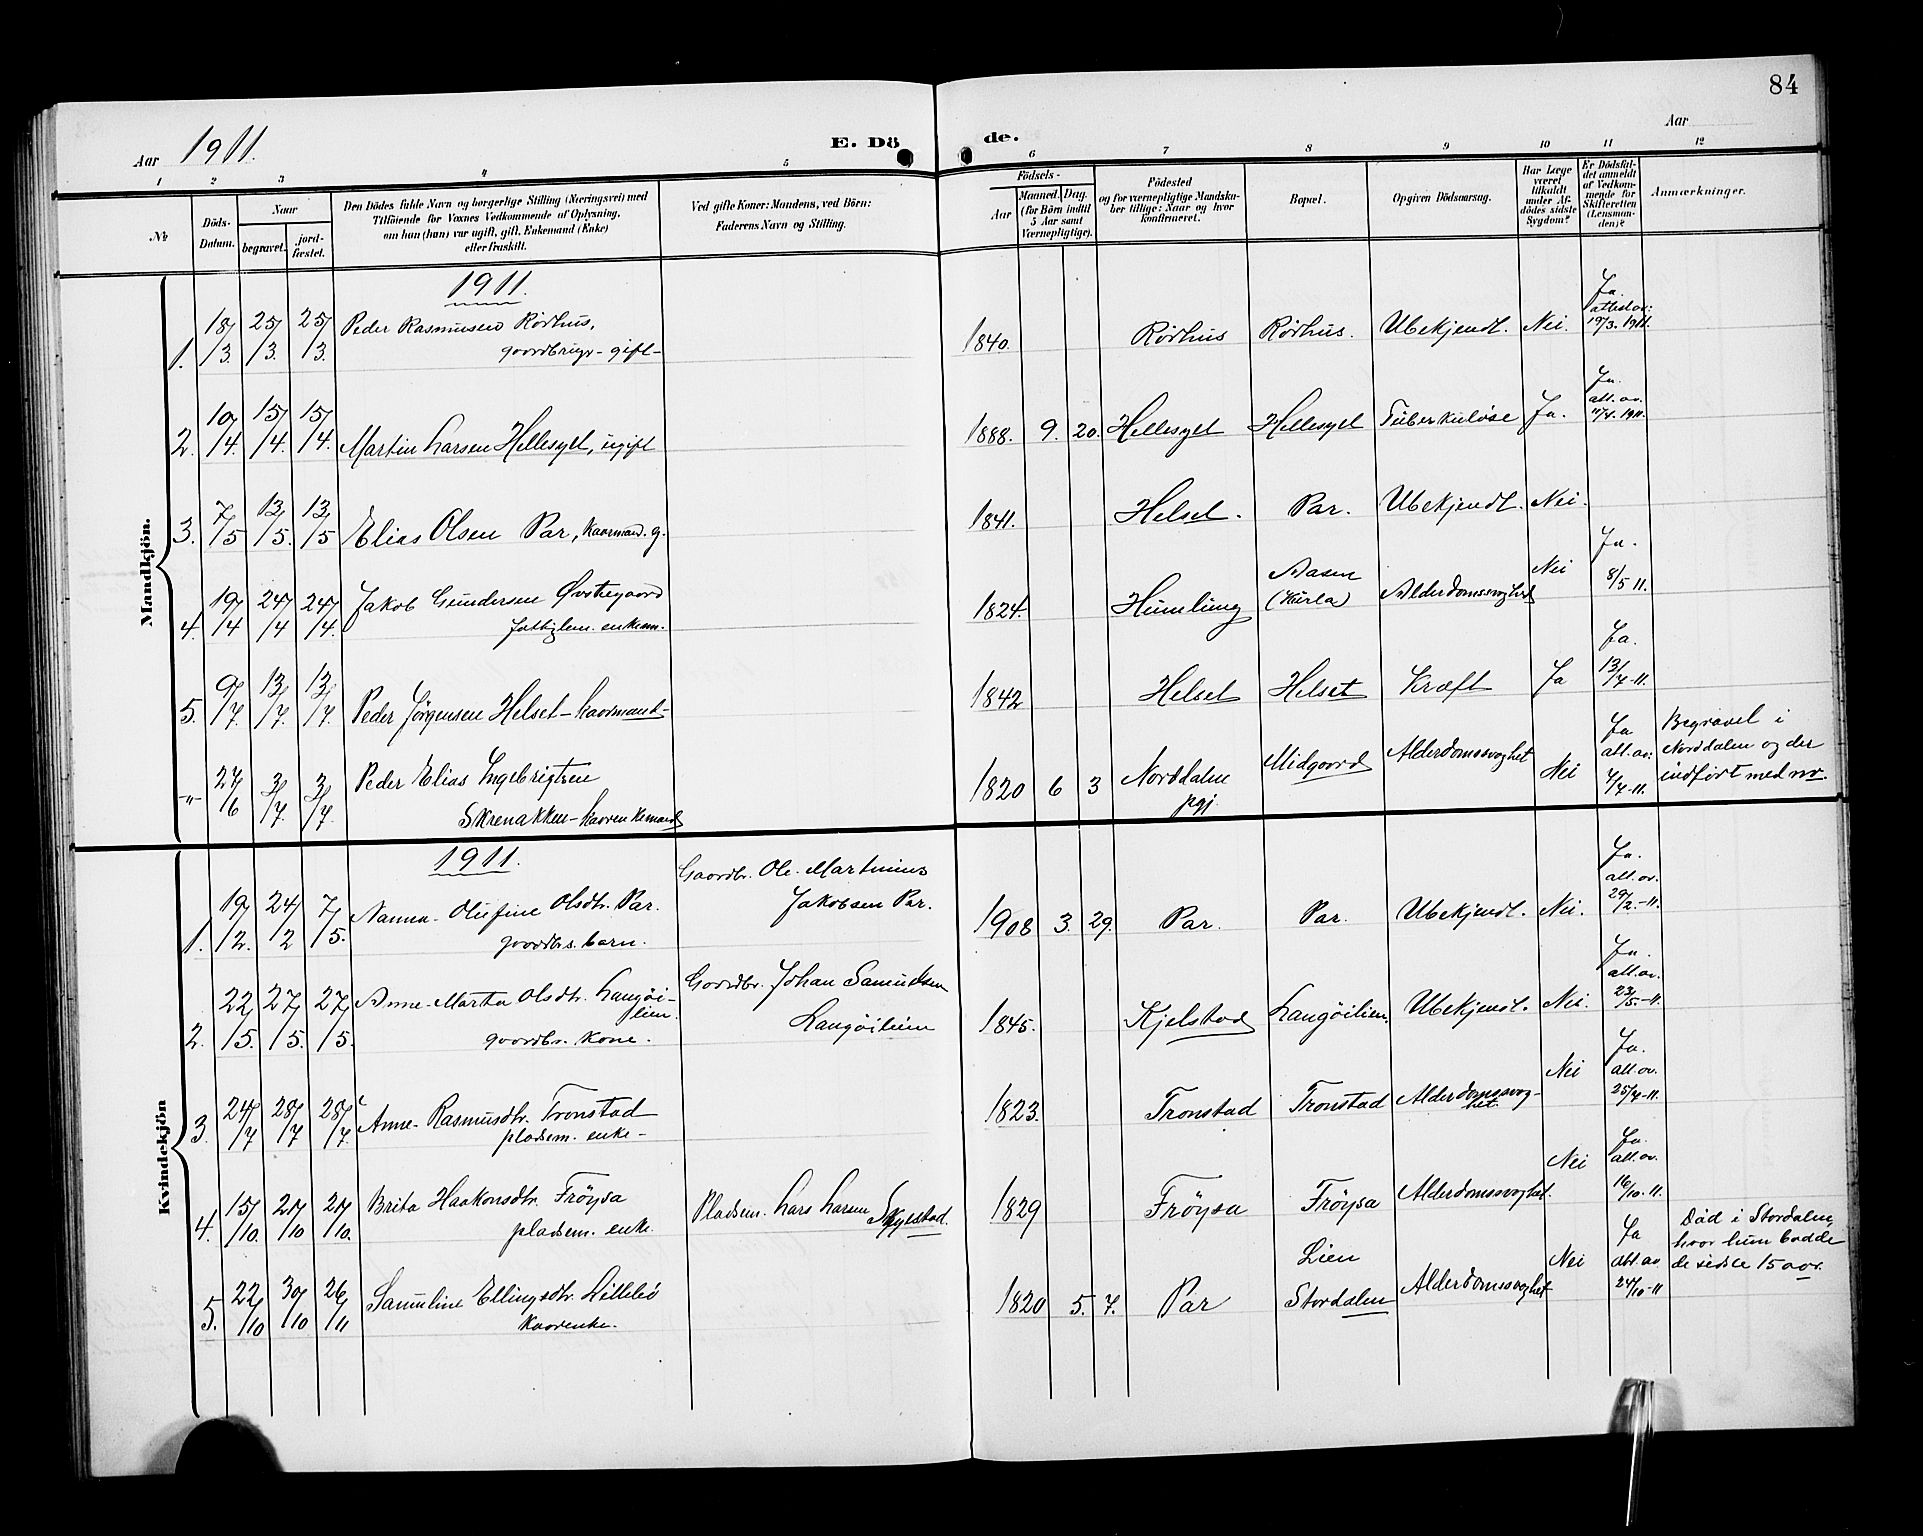 84
Aar 1911.
E. Dö de.
Aar
1 2 3 4 5 6 7 8 9 10 11 12
№
Döds-
Datum.
Naar
begravet.
jord-
fæstet.
Den Dödes fulde Navn og borgerlige Stilling (Næringsvei) med
Tilföiende for Voxnes Vedkommende af Oplysning,
om han (hun) var ugift, gift, Enkemand (Enke)
eller fraskilt.
Ved gifte Koner: Mandens, ved Börn:
Faderens Navn og Stilling.
Födsels-
Aar
Maaned. Dag.
(for Börn indtil
5 Aar samt
Værnepligtige).
Födested
og for værnepligtige Mandska-
ber tillige: Naar og hvor
konfirmeret.
Bopæl.
Opgiven Dödsaarsag.
Har Læge
været
tilkaldt
under Af-
dödes sidste
Sygdom?
Er Dödsfal-
det anmeldt
af Vedkom-
mende for
Skifteretten
(Lensman-
den)?
Anmærkninger.
Mandkjön.
1911.
1. 18/3. 25/3. 25/3. Peder Rasmusen Rödhus,
gaardbruger - gift -
1840. Rødhus Rødhus. Ubekjendt. Nei. Ja.
19/3. 1911.
2. 10/4. 15/4. 15/4. Martin Larsen Hellesyet, ugift
1888. 9. 20. Hellesyet Hellesyet Tuberkuløse Ja. Ja.
att. av.
11/4. 1911.
3. 7/5 13/5. 13/5 Elias Olsen Par, kaarmand. g.
1841. Helset. Par. Ubekjendt. Nei. Ja.
8/5 11.
4. 19/4 24/4 24/4. Jakob Gundersen Øvstegaard
fattiglem. enkem.
1824. Humlung Aasen
(Hurla) Alderdomssvaghed Nei Ja.
5. 9/7 13/7. 13/7. Peder Jørgensen Helset - kaarmand -
1842 Helset Helset Kræft Ja 13/7-11.
-"- 27/6 3/7. 3/7. Peder Elias Ingebrigtsen
Skrenakken - kaarenkemand
1820 6 3 Norddalen
pgj. Midgaard Alderdomssvaghet Nei Ja
att. av.
4/7-11.
Begravet i
Norddalen og der
indført med no.
Kvindekjön
1911.
1. 19/2. 24/2 7/5. Nanna Olufine Olsdtr. Par.
gaardbs. barn.
Gaardbr. Ole Martinius
Jakobsen Par.
1908 3. 29. Par. Par. Ubekjendt. Nei. Ja.
att. av.
29/2.-11.
2. 22/5. 27/5. 27/5. Anne-Marta Olsdtr. Langøi-
lien.
gaardbr. kone.
Gaardbr. Johan Samuelsen
Langøilien
1845. Kjelstad Langøilien. Ubekjendt. Nei. Ja.
att. av.
23/5.-11.
3. 24/7 28/7 28/7. Anne Rasmusdtr. Tronstad
pladsem. enke -
1823. Tronstad Tronstad Alderdomssvag-
het. Nei Ja.
att. av.
25/7-11.
4. 15/10. 21/10 21/10. Brita Haakonsdtr. Frøysa
pladsem. enke.
Pladsem. Lars Larsen Skylstad.
1829 Frøysa Frøysa Alderdomssvaghet. Nei Ja.
att. av.
16/10.11.
5. 22/10 30/10 26/11 Samuline Ellingsdtr. Lillebö
Kaarenke.
1820 5. 7. Par Lien
Stordalen Alderdomssvaghet Nei Ja
att. av
24/10-11
Död i Stordalen,
hvor hun bodde
de sidste 15 aar.